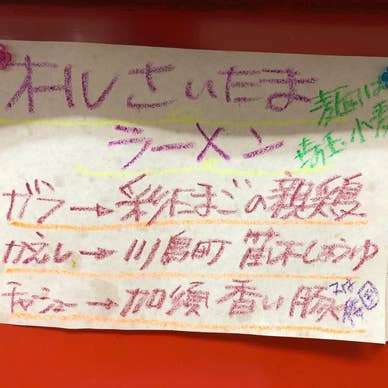 オールさいたま
ラーメン
麺は
埼玉小麦
ガラ→彩たまごの親鶏
かえし→川島町 笛木しょうゆ
チャーシュー→加須 香り豚